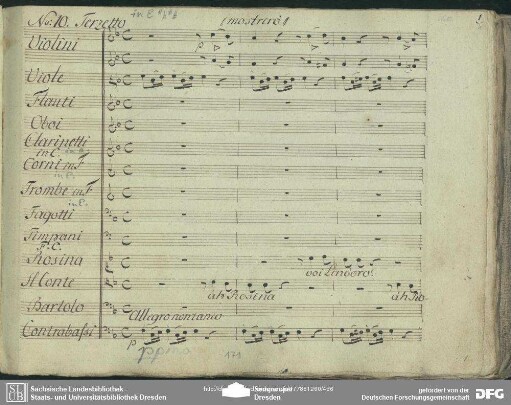 No: 10. Terzetto
(mostrerò)
1.
Violini
Viole
Flauti
Oboi
Clarinetti
in C.
Corni in F
Trombe in F
Fagotti
Timpani
F. C.
Rosina
voi Lindoro!
Il Conte
ah Rosina
ah Ro
Bartolo
Allegro non tanto
Contrabassi
p
ppmo
171
SLUB
Sächsische Landesbibliothek
Staats- und Universitätsbibliothek Dresden
gefördert von der
Deutschen Forschungsgemeinschaft
DFG